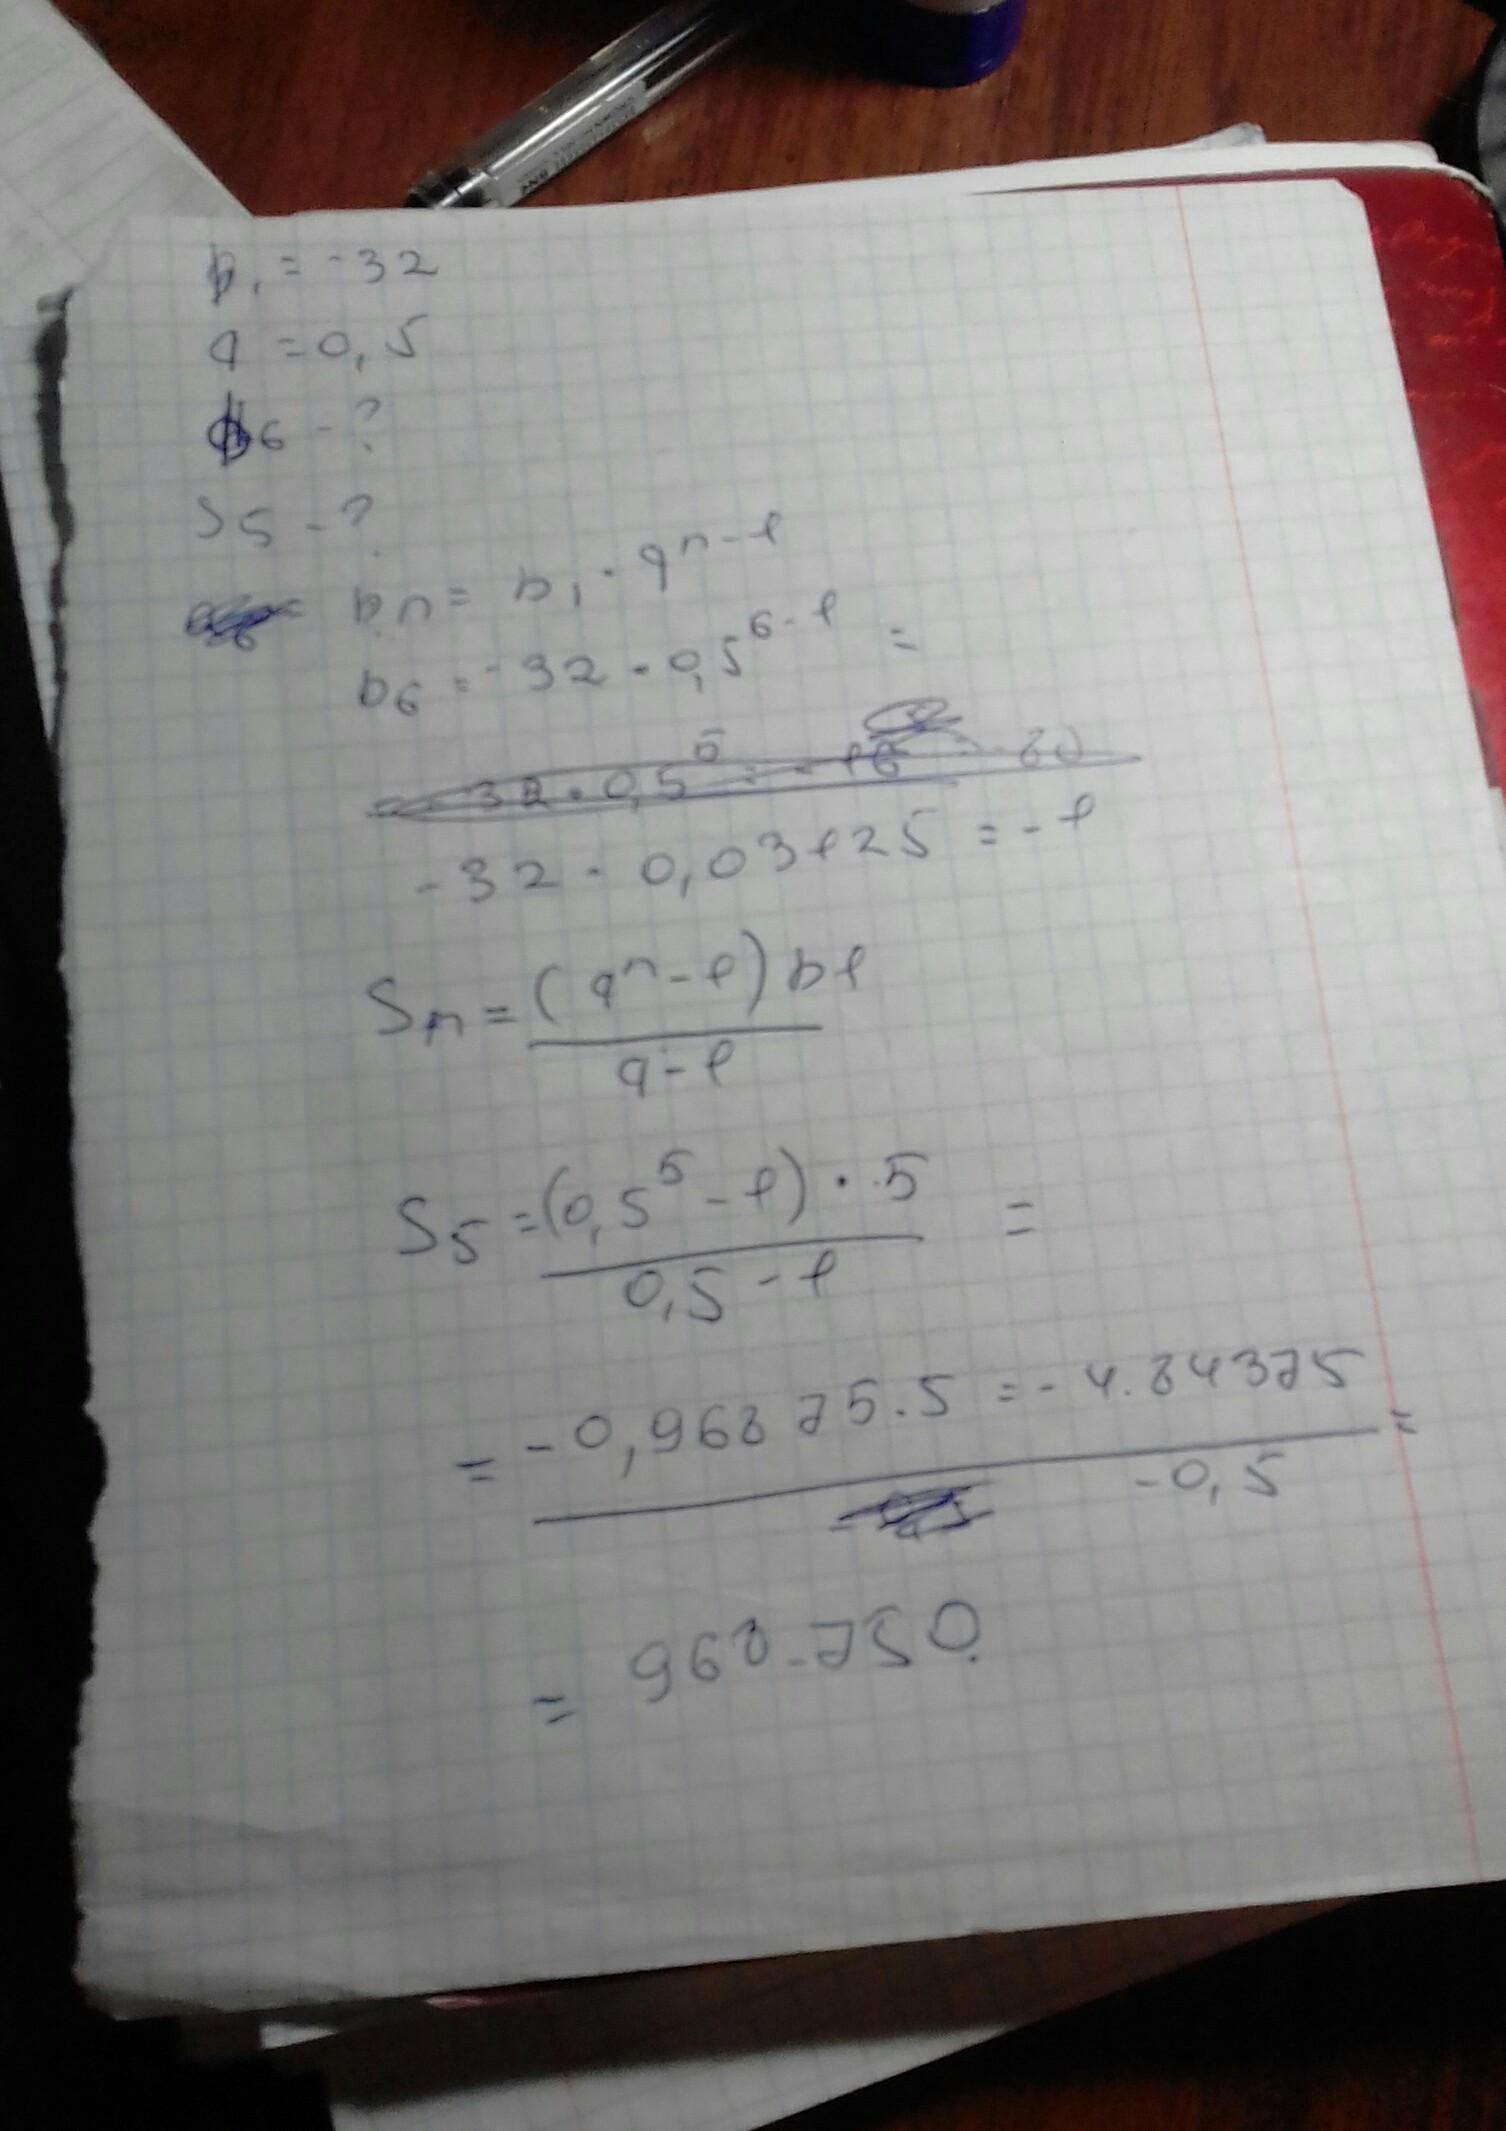 b₁ = -32
q = 0,5
b6 - ?
S5 - ?
bn = b₁ · qⁿ⁻¹
b6 = -32 · 0,5⁶⁻¹ =
-32 · 0,03125 = -1
Sn = (qⁿ - 1) b1
q - 1
S5 = (0,5⁵ - 1) · 5 =
0,5 - 1
= -0,96875 · 5 = -4.84375 =
-0,5
= 968.750